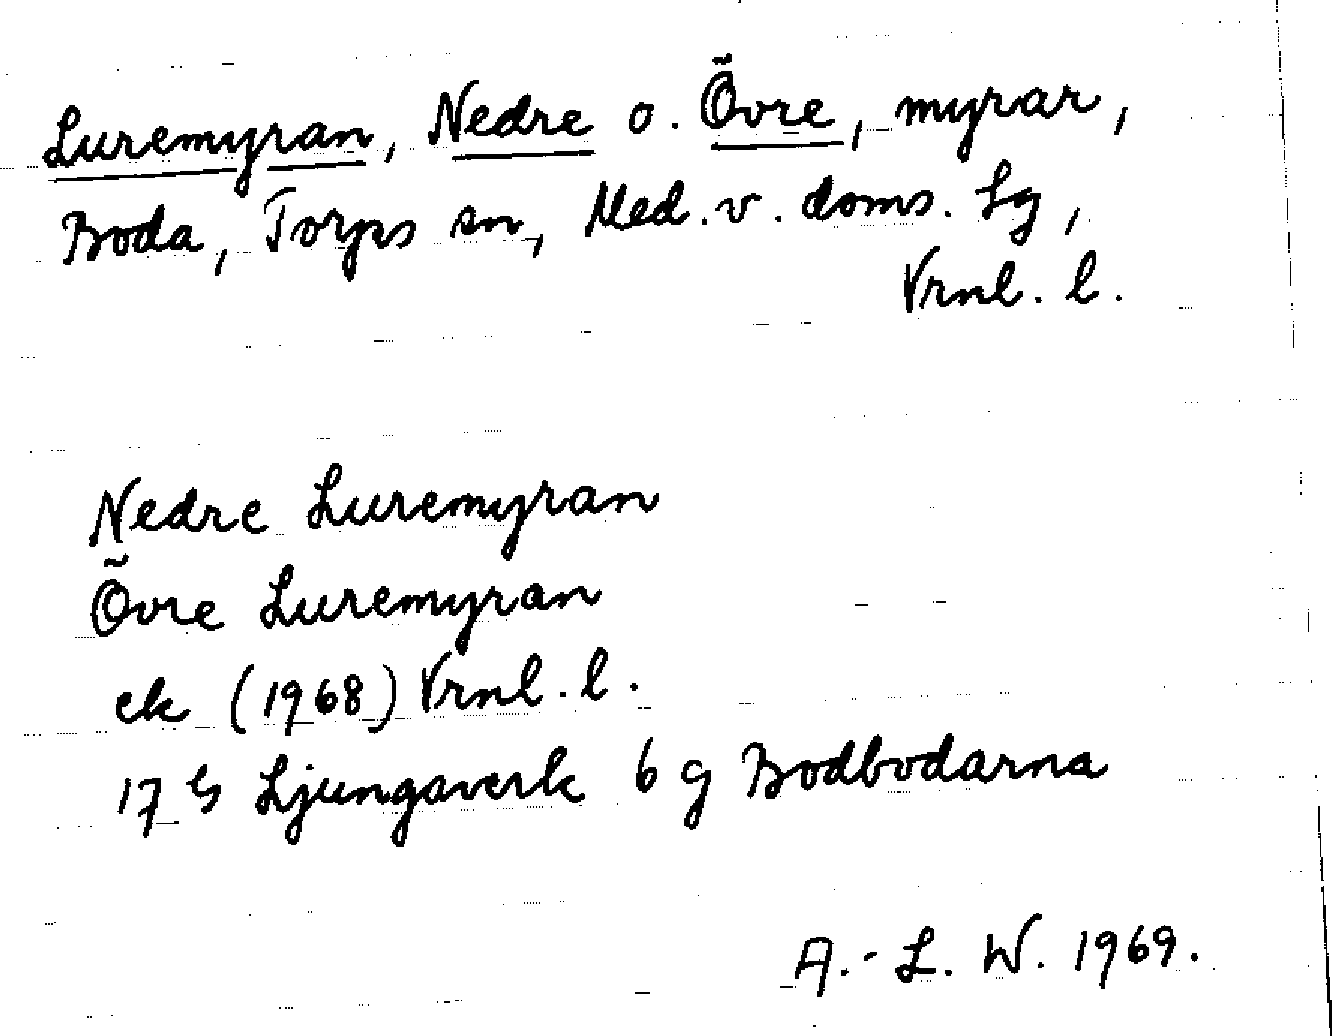 Luremyran, Nedre o. Övre, myrar,
Boda, Torps sn, Med. v. doms. Lg,
Vrnl. l.
Nedre Luremyran
Övre Luremyran
ek (1968) Vrnl. l.
17 G Ljungaverk 6 g Bodbodarna
A.-L. W. 1969.